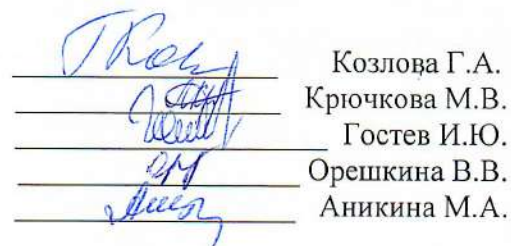 Козлова Г.А.
Крючкова М.В.
Гостев И.Ю.
Орешкина В.В.
Аникина М.А.